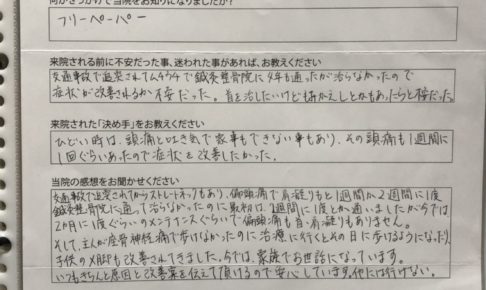 何がきっかけで当院をお知りになりましたか?
フリーペーパー
来院される前に不安だった事、迷われた事があれば、お教えください
交通事故で追突されてムチウチで鍼灸整骨院に4年も通ったが治らなかったので
症状が改善されるか不安だった。首を治したいけどもみかえしとかもあったらと不安だった。
来院された「決め手」をお教えください
ひどい時は、頭痛と吐き気で家事もできない事もあり、その頭痛も1週間に
1回ぐらいあったので症状を改善したかった。
当院の感想をお聞かせください
交通事故で追突されてからストレートネックもあり、偏頭痛で肩凝りもと1週間か2週間に1度
鍼灸整骨院に通って治らなかったのに最初は、1週間に1度とか通いましたが今では
2カ月に1度ぐらいのメンテナンスぐらいで偏頭痛も首・肩凝りもありません。
そして、主人が座骨神経痛で歩けなかったのに治療に行くとその日に歩けるようになったり、
子供のX脚も改善されてきました。今では、家族でお世話になっています。
いつもきちんと原因と改善策を伝えて頂けるので安心しています。他には行けない。